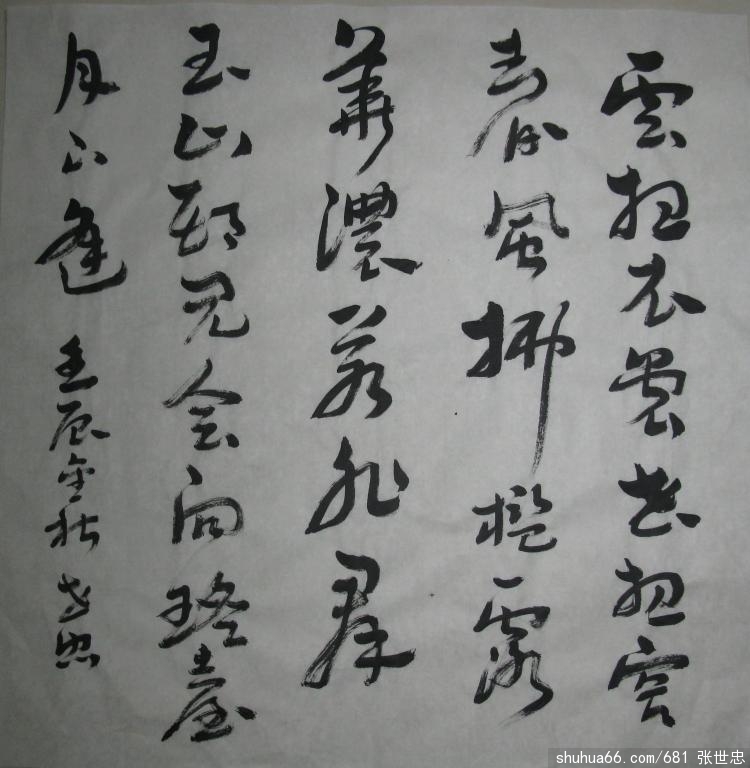 雲想衣裳花想容
春風拂檻露
華濃若非羣
玉山頭见会向瑤臺
月下逢 壬辰金秋 世忠
shuhua66.com/681 张世忠